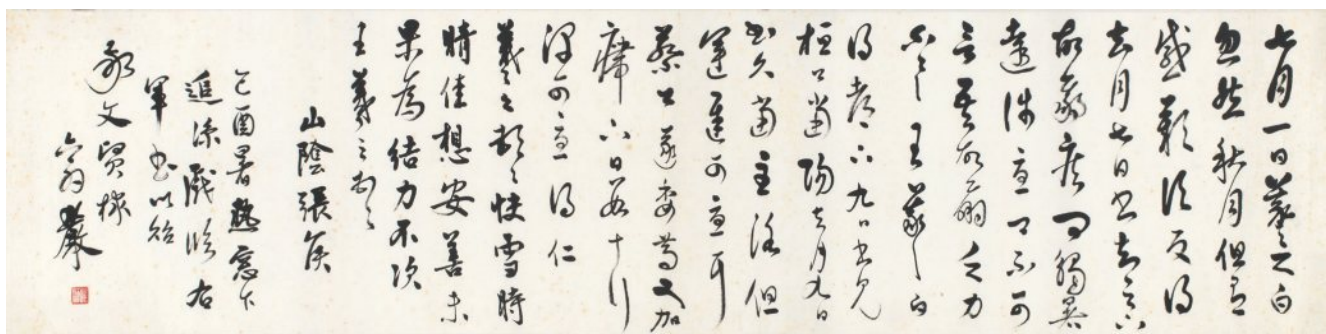 七月一日羲之白
忽然秋月但有
感歎信反得
去月七日書知足下
故羸疾而觸暑
遠涉憂卿不可
言吾故羸乏力
不具王羲之白
得都下九日書見
桓公當陽去月九日
書久當至洛但
運遲可憂耳
蔡公遂委篤又加
癖下日數十行
深可憂得仁
羲之頓首快雪時
晴佳想安善未
果為結力不次
王羲之頓首
山陰張侯
己酉暑熱窗下
追涼戲臨右
軍書以貽
敬文賢棣